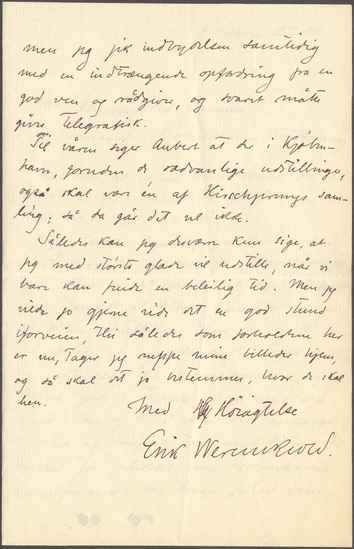 men jeg fik indbydelsen samtidig
med en indtrængende opfordring fra en
god ven og rådgiver, og svaret måtte
gives telegrafisk.
Til våren siger Aubert at der i Kjøben-
havn, foruden de sædvanlige udstillinger,
også skal være én af Hirschsprungs sam-
ling; så da går det vel ikke.
Således kan jeg desværre kun sige, at
jeg med største glæde vil udstille, når vi
bare kan finde en beleilig tid. Men jeg
vilde jo gjerne vide det en god stund
iforveien, thi således som forholdene her
er nu, tager jeg neppe mine billeder hjem,
og så skal det jo bestemmes, hvor de skal
hen.
Med Høiagtelse
Erik Werenskiold.